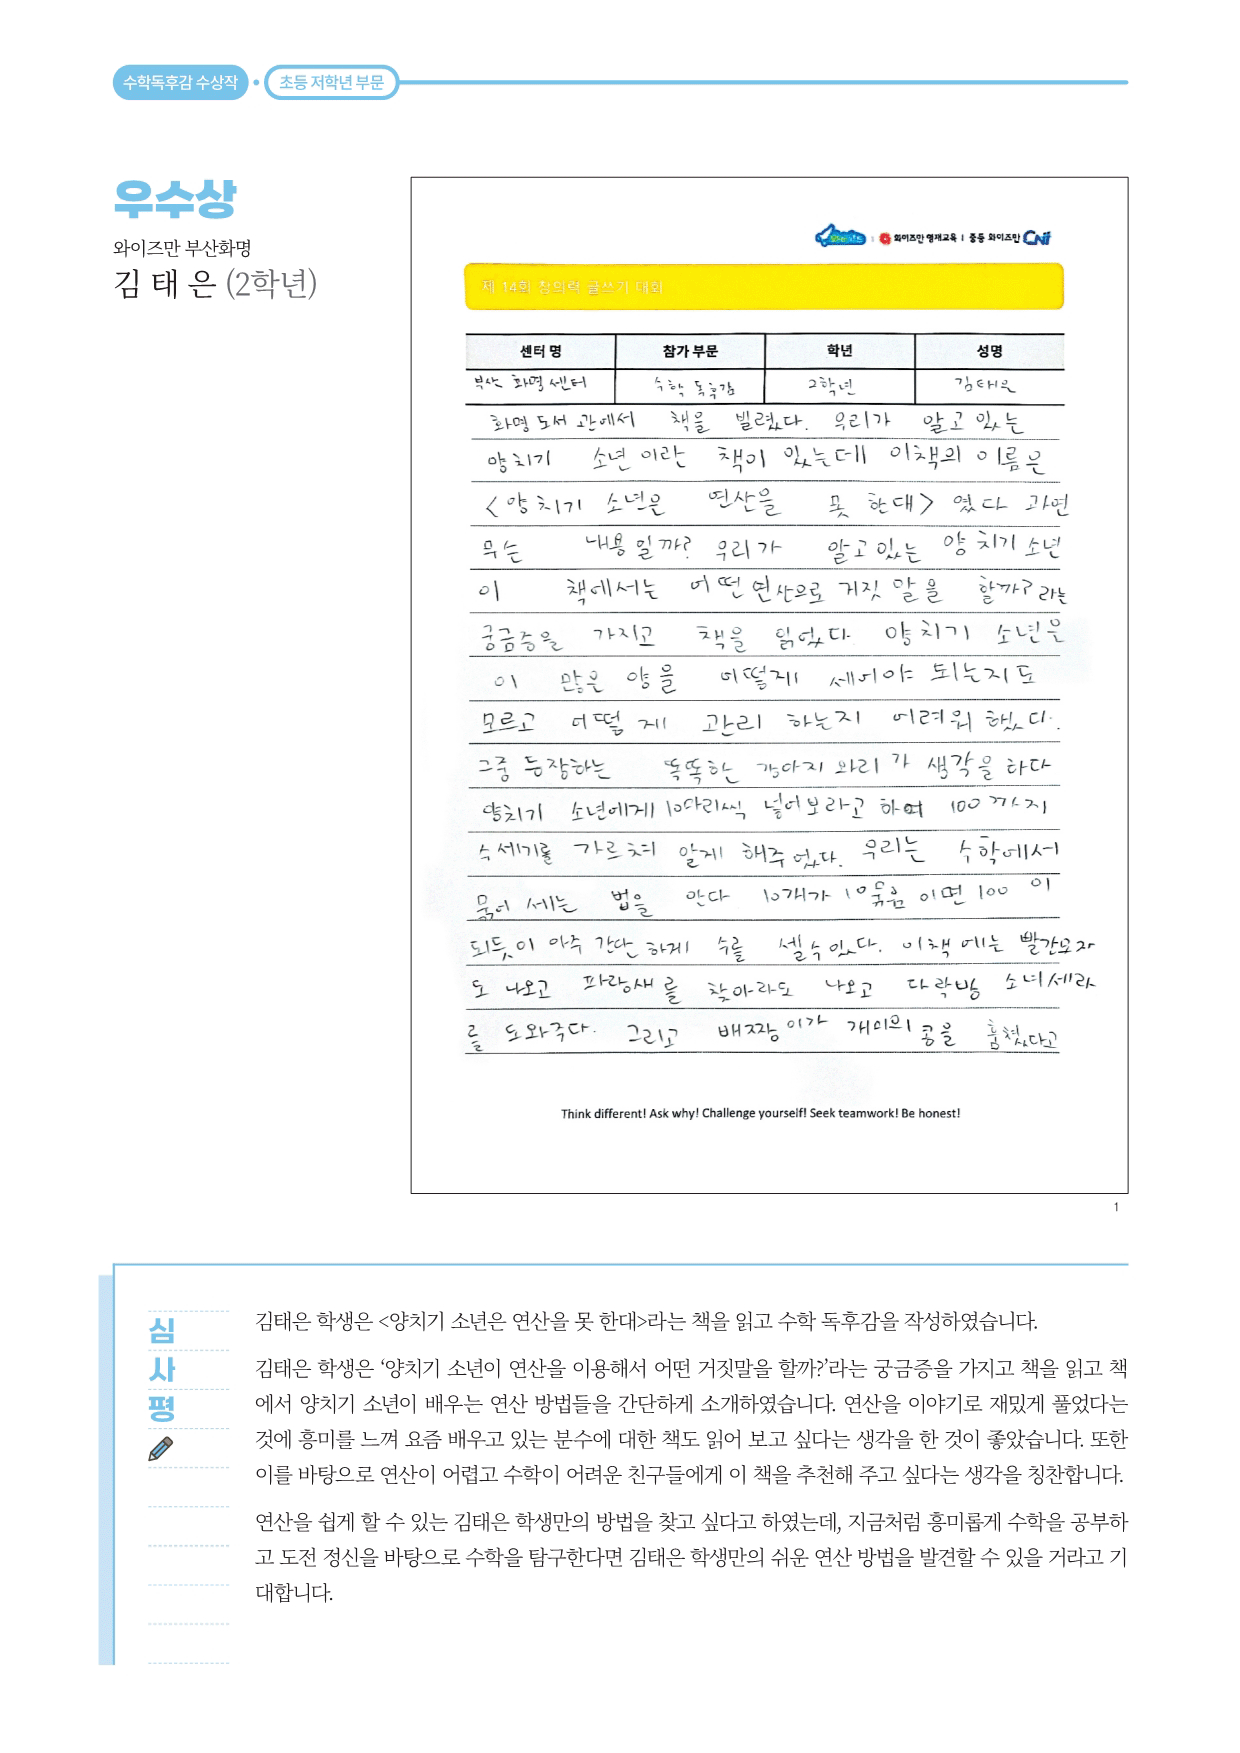 수학독후감 수상작 • 초등 저학년 부문
우수상
와이즈만 부산화명
김 태 은 (2학년)
와이즈만 영재교육 | 중등 와이즈만 CNI
제 14회 창의력 글쓰기 대회
센터 명 참가 부문 학년 성명
부산 화명 센터 수학 독후감 2학년 김태은
화명 도서 관에서 책을 빌렸다. 우리가 알고 있는
양치기 소년 이란 책이 있는데 이책의 이름은
<양치기 소년은 연산을 못 한대> 였다 과연
무슨 내용 일까? 우리가 알고있는 양 치기 소년
이 책에서는 어떤 연산으로 거짓 말을 할까? 라는
궁금증을 가지고 책을 읽었다. 양치기 소년은
이 많은 양을 어떻게 세어야 되는지도
모르고 어떻 게 관리 하는지 어려워 했다.
그중 등장하는 똑똑한 강아지 와리 가 생각을 하다
양치기 소년에게 10마리씩 넣어보라고 하며 100 까지
수세기를 가르쳐 알게 해주 었다. 우리는 수학에서
묶어 세는 법을 안다 10개가 10묶음 이면 100 이
되듯이 아주 간단 하게 수를 셀수있다. 이책 에는 빨간모자
도 나오고 파랑새를 찾아라도 나오고 다락방 소녀세라
를 도와주다. 그리고 배짱이가 개미의 콩을 훔쳤다고
Think different! Ask why! Challenge yourself! Seek teamwork! Be honest!
1
심
사
평
김태은 학생은 <양치기 소년은 연산을 못 한대>라는 책을 읽고 수학 독후감을 작성하였습니다.
김태은 학생은 ‘양치기 소년이 연산을 이용해서 어떤 거짓말을 할까?’라는 궁금증을 가지고 책을 읽고 책
에서 양치기 소년이 배우는 연산 방법들을 간단하게 소개하였습니다. 연산을 이야기로 재밌게 풀었다는
것에 흥미를 느껴 요즘 배우고 있는 분수에 대한 책도 읽어 보고 싶다는 생각을 한 것이 좋았습니다. 또한
이를 바탕으로 연산이 어렵고 수학이 어려운 친구들에게 이 책을 추천해 주고 싶다는 생각을 칭찬합니다.
연산을 쉽게 할 수 있는 김태은 학생만의 방법을 찾고 싶다고 하였는데, 지금처럼 흥미롭게 수학을 공부하
고 도전 정신을 바탕으로 수학을 탐구한다면 김태은 학생만의 쉬운 연산 방법을 발견할 수 있을 거라고 기
대합니다.